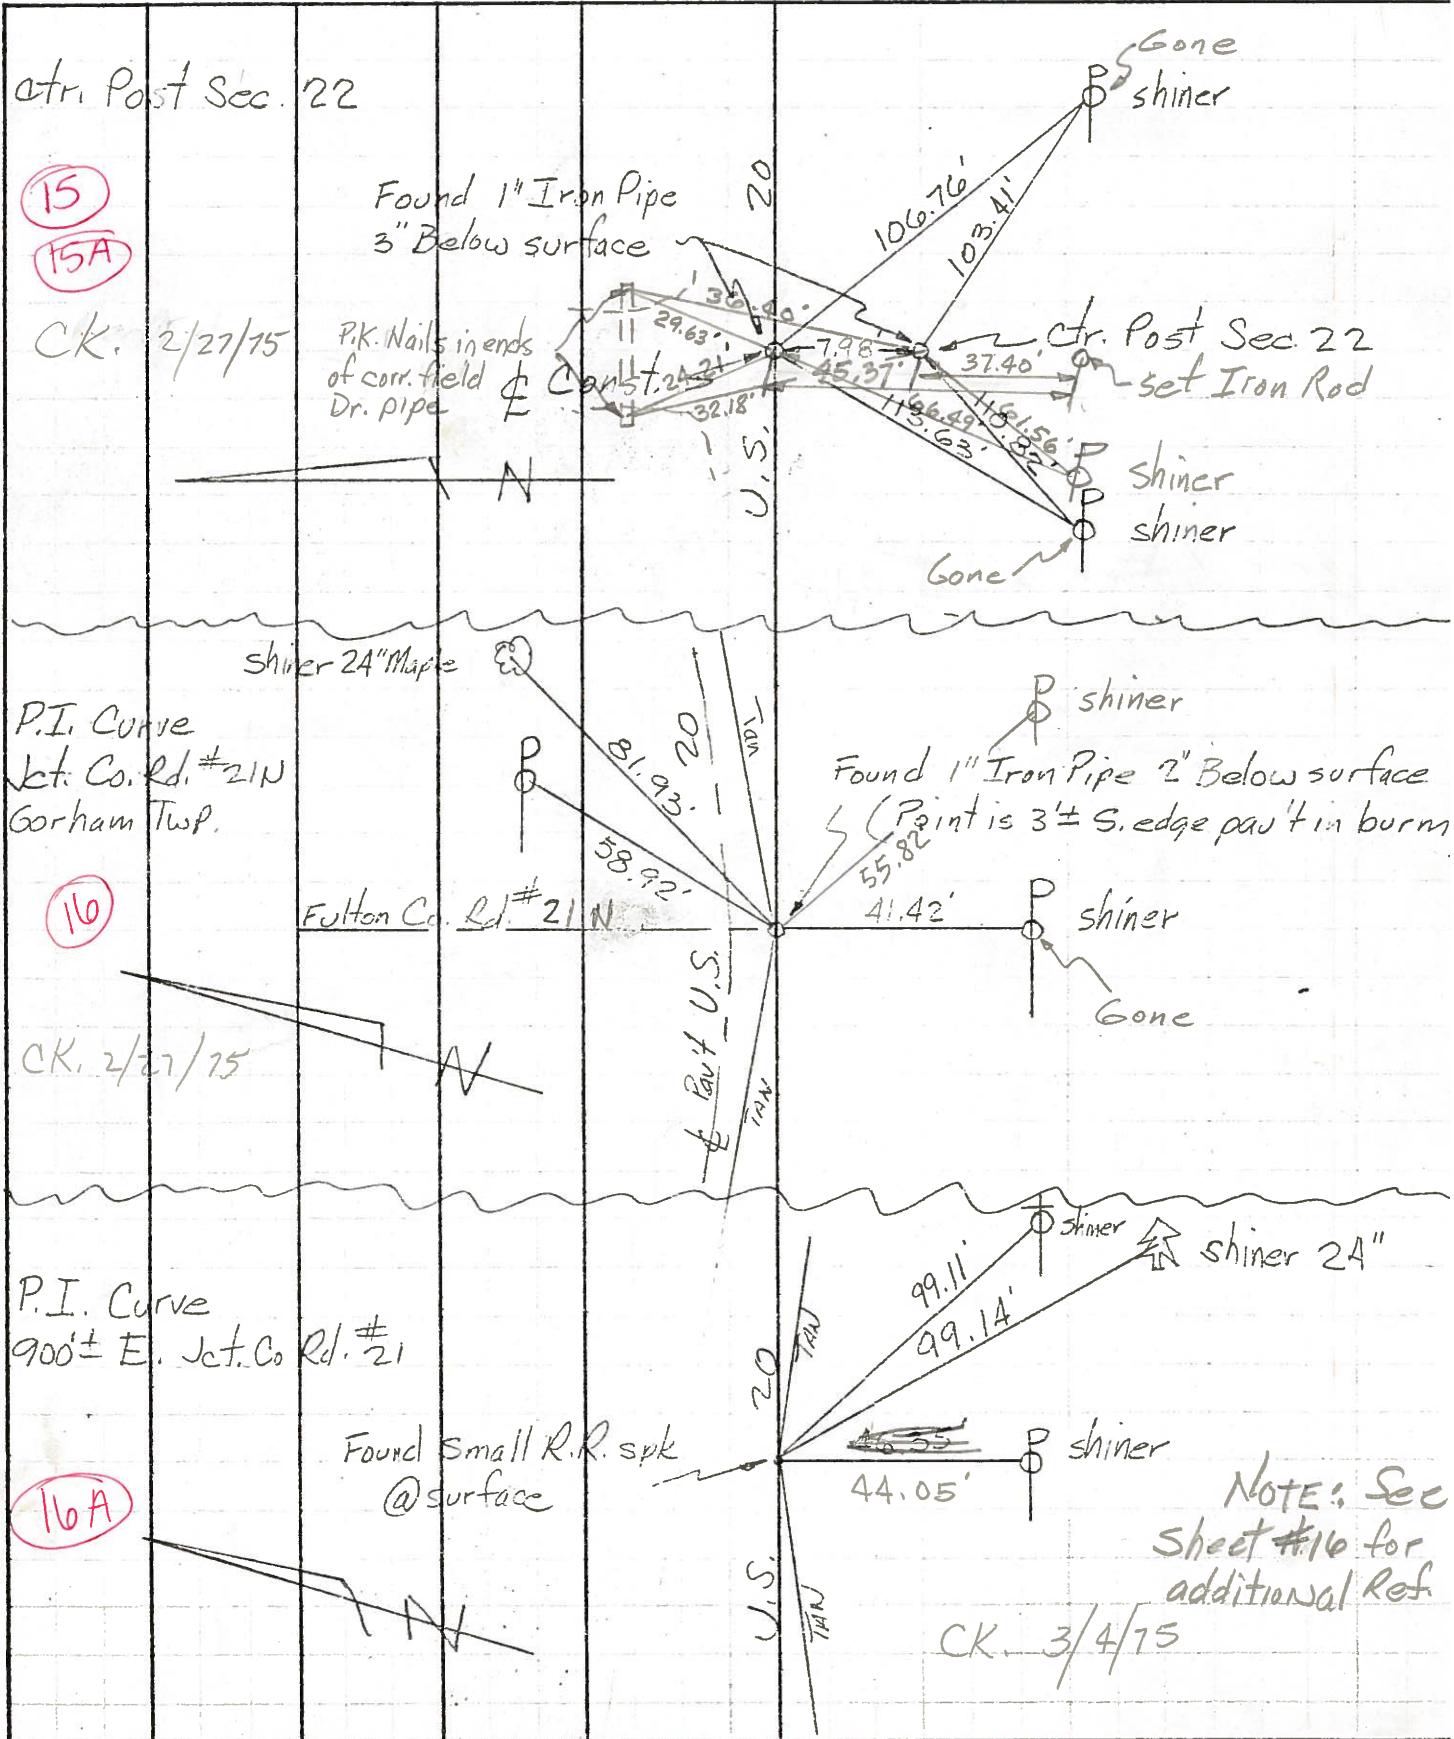 Ctr. Post Sec. 22
15
15A
CK. 2/27/75
Found 1" Iron Pipe
3" Below surface
P.K. Nails in ends
of corr. field
Dr. pipe
℄ Const.
N
U.S. 20
Gone
P shiner
106.76'
103.41'
36.40'
29.63'
24.21'
32.18'
7.98'
45.37'
37.40'
Ctr. Post Sec. 22
set Iron Rod
66.49'
61.56'
113.63'
110.82'
P shiner
P shiner
Gone
shiner 24" Maple
P.I. Curve
Jct. Co. Rd. #21N
Gorham Twp.
16
CK. 2/27/75
P
81.93'
58.92'
Fulton Co. Rd. #21 N
℄ Pav't U.S. 20
Tan
TAN
P shiner
Found 1" Iron Pipe 2" Below surface
(Point is 3'± S. edge pav't in burm
55.82'
41.42'
P shiner
Gone
N
P.I. Curve
900'± E. Jct. Co Rd. #21
16A
Found Small R.R. spk
@ surface
N
U.S. 20
TAN
TAN
99.11'
99.14'
shiner
shiner 24"
44.05'
P shiner
NOTE: See
Sheet #16 for
additional Ref.
CK. 3/4/75